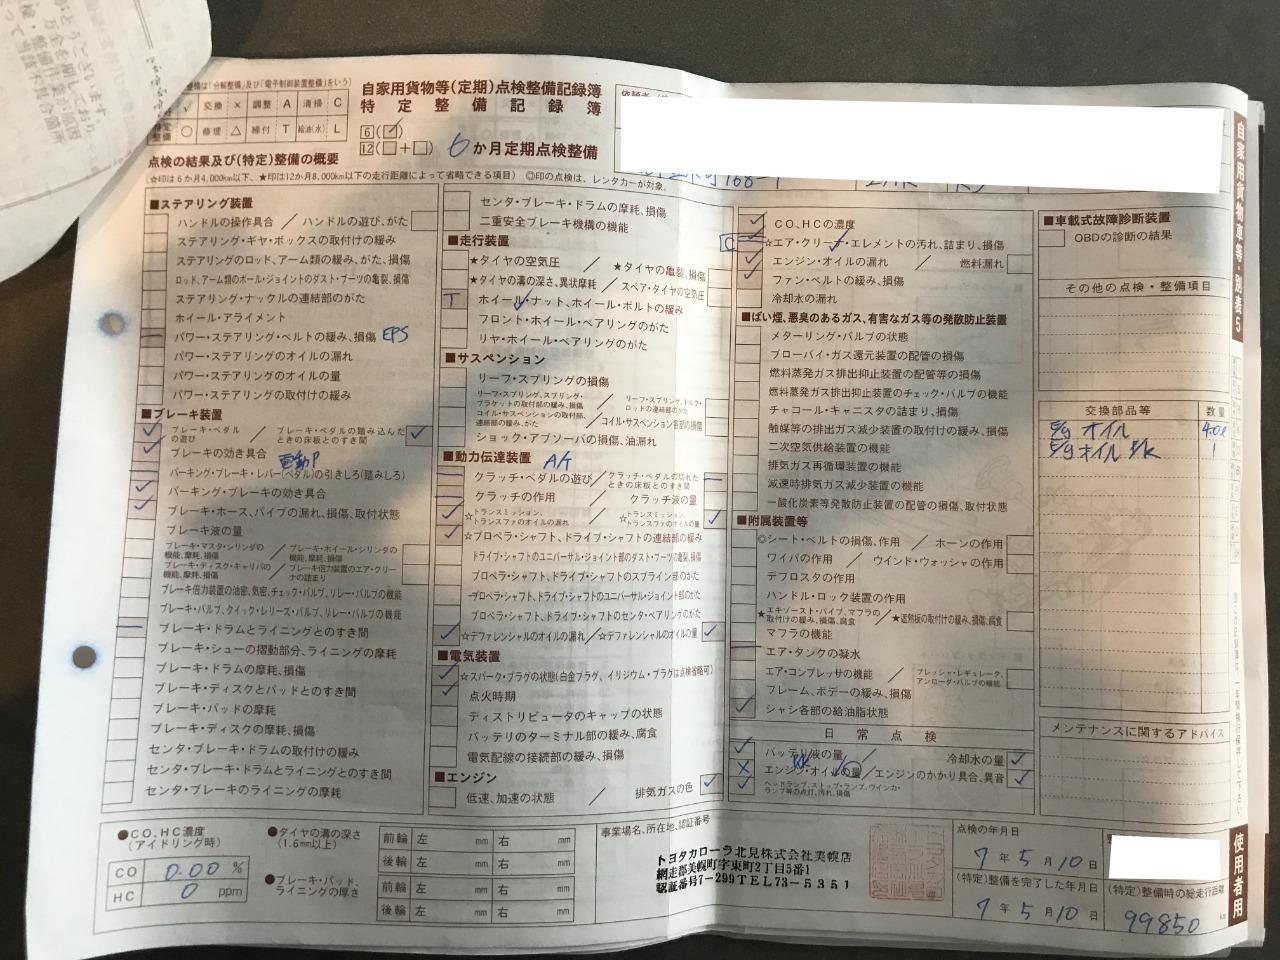 整備は「分解整備」及び「電子制御装置整備」をいう)
交換 × 調整 A 清掃 C
整備 ○ 修理 △ 締付 T 給油(水) L
自家用貨物等(定期)点検整備記録簿
特定整備記録簿
6(✓)
12(□+□)
6か月定期点検整備
点検の結果及び(特定)整備の概要
(☆印は6か月4,000km以下、★印は12か月8,000km以下の走行距離によって省略できる項目) ◎印の点検は、レンタカーが対象。
■ステアリング装置
ハンドルの操作具合 / ハンドルの遊び、がた
ステアリング・ギヤ・ボックスの取付けの緩み
ステアリングのロッド、アーム類の緩み、がた、損傷
ロッド、アーム類のボール・ジョイントのダスト・ブーツの亀裂、損傷
ステアリング・ナックルの連結部のがた
ホイール・アライメント
パワー・ステアリング・ベルトの緩み、損傷 EPS
パワー・ステアリングのオイルの漏れ
パワー・ステアリングのオイルの量
パワー・ステアリングの取付けの緩み
■ブレーキ装置
ブレーキ・ペダルの遊び / ブレーキ・ペダルの踏み込んだときの床板とのすき間
ブレーキの効き具合
電動P
パーキング・ブレーキ・レバー(ペダル)の引きしろ(踏みしろ)
パーキング・ブレーキの効き具合
ブレーキ・ホース、パイプの漏れ、損傷、取付状態
ブレーキ液の量
ブレーキ・マスタ・シリンダの機能、摩耗、損傷 / ブレーキ・ホイール・シリンダの機能、摩耗、損傷
ブレーキ・ディスク・キャリパの機能、摩耗、損傷 / ブレーキ倍力装置のエア・クリーナの詰まり
ブレーキ倍力装置の油密、気密、チェック・バルブ、リレー・バルブの機能
ブレーキ・バルブ、クイック・レリーズ・バルブ、リレー・バルブの機能
ブレーキ・ドラムとライニングとのすき間
ブレーキ・シューの摺動部分、ライニングの摩耗
ブレーキ・ドラムの摩耗、損傷
ブレーキ・ディスクとパッドとのすき間
ブレーキ・パッドの摩耗
ブレーキ・ディスクの摩耗、損傷
センタ・ブレーキ・ドラムの取付けの緩み
センタ・ブレーキ・ドラムとライニングとのすき間
センタ・ブレーキのライニングの摩耗
センタ・ブレーキ・ドラムの摩耗、損傷
二重安全ブレーキ機構の機能
■走行装置
★タイヤの空気圧 / ★タイヤの亀裂、損傷
★タイヤの溝の深さ、異状摩耗 / スペア・タイヤの空気圧
T ホイール・ナット、ホイール・ボルトの緩み
フロント・ホイール・ベアリングのがた
リヤ・ホイール・ベアリングのがた
■サスペンション
リーフ・スプリングの損傷
リーフ・スプリング、スプリング・ブラケットの取付部の緩み、損傷 / リーフ・スプリング、トルク・ロッドの連結部のがた
コイル・サスペンションの取付部、連結部の緩み、がた / コイル・サスペンション各部の損傷
ショック・アブソーバの損傷、油漏れ
■動力伝達装置 A/T
クラッチ・ペダルの遊び / クラッチ・ペダルの切れたときの床板とのすき間
クラッチの作用 / クラッチ液の量
☆トランスミッション、トランスファのオイルの漏れ / ☆トランスミッション、トランスファのオイルの量
☆プロペラ・シャフト、ドライブ・シャフトの連結部の緩み
ドライブ・シャフトのユニバーサル・ジョイント部のダスト・ブーツの亀裂、損傷
プロペラ・シャフト、ドライブ・シャフトのスプライン部のがた
プロペラ・シャフト、ドライブ・シャフトのユニバーサル・ジョイント部のがた
プロペラ・シャフト、ドライブ・シャフトのセンタ・ベアリングのがた
☆デファレンシャルのオイルの漏れ / ☆デファレンシャルのオイルの量
■電気装置
☆スパーク・プラグの状態(白金プラグ、イリジウム・プラグは点検省略可)
点火時期
ディストリビュータのキャップの状態
バッテリのターミナル部の緩み、腐食
電気配線の接続部の緩み、損傷
■エンジン
低速、加速の状態 / 排気ガスの色
CO、HCの濃度
C ☆エア・クリーナ・エレメントの汚れ、詰まり、損傷
エンジン・オイルの漏れ / 燃料漏れ
ファン・ベルトの緩み、損傷
冷却水の漏れ
■ばい煙、悪臭のあるガス、有害なガス等の発散防止装置
メターリング・バルブの状態
ブローバイ・ガス還元装置の配管の損傷
燃料蒸発ガス排出抑止装置の配管等の損傷
燃料蒸発ガス排出抑止装置のチェック・バルブの機能
チャコール・キャニスタの詰まり、損傷
触媒等の排出ガス減少装置の取付けの緩み、損傷
二次空気供給装置の機能
排気ガス再循環装置の機能
減速時排気ガス減少装置の機能
一酸化炭素等発散防止装置の配管の損傷、取付状態
■附属装置等
◎シート・ベルトの損傷、作用 / ホーンの作用
ワイパの作用 / ウインド・ウォッシャの作用
デフロスタの作用
ハンドル・ロック装置の作用
★エキゾースト・パイプ、マフラの取付けの緩み、損傷、腐食 / ★遮熱板の取付けの緩み、損傷、腐食
マフラの機能
エア・タンクの凝水
エア・コンプレッサの機能 / プレッシャ・レギュレータ、アンローダ・バルブの機能
フレーム、ボデーの緩み、損傷
シャシ各部の給油脂状態
日常点検
バッテリ液の量 / 冷却水の量
エンジン・オイルの量 / エンジンのかかり具合、異音
ヘッドランプ、ストップ・ランプ、ウインカ・ランプ等の点灯、汚れ、損傷
■車載式故障診断装置
OBDの診断の結果
その他の点検・整備項目
交換部品等 数量
E/g オイル 4.0ℓ
E/gオイル E/K 1
メンテナンスに関するアドバイス
自家用貨物車等・別表5
使用者用
●CO、HC濃度(アイドリング時)
CO 0.00 %
HC 0 ppm
●タイヤの溝の深さ(1.6mm以上)
前輪 左 mm 右 mm
後輪 左 mm 右 mm
●ブレーキ・パッド、ライニングの厚さ
前輪 左 mm 右 mm
後輪 左 mm 右 mm
事業場名、所在地、認証番号
トヨタカローラ北見株式会社美幌店
網走郡美幌町字東町2丁目5番1
認証番号7-299TEL73-5351
点検の年月日
7年5月10日
(特定)整備を完了した年月日
7年5月10日
(特定)整備時の総走行距離
99850 km